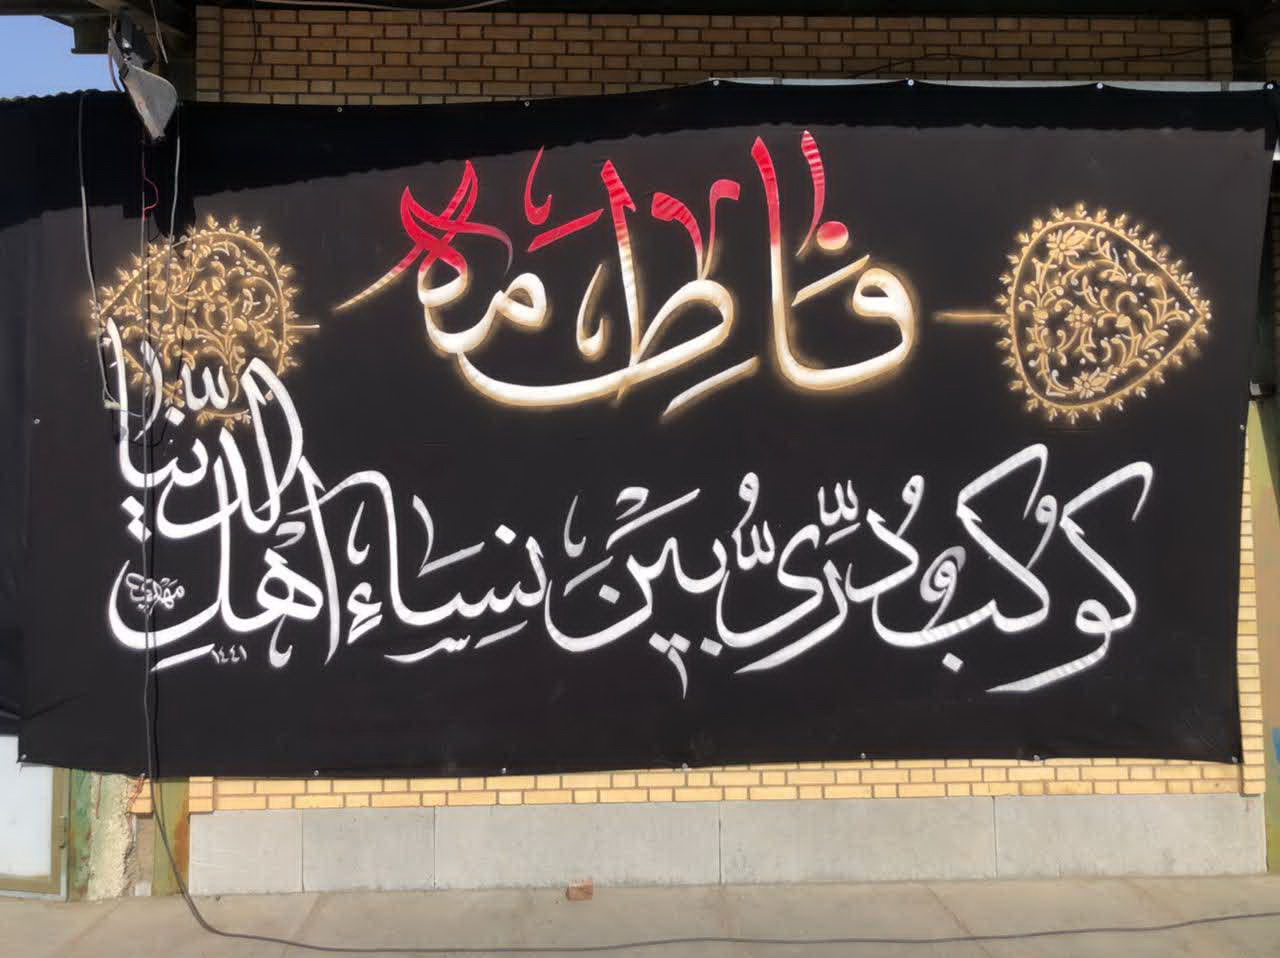 فاطمه
کوکب دُرّیٌّ بینَ نِساءِ اَهلِ الدّنیا
۱٤٤۱